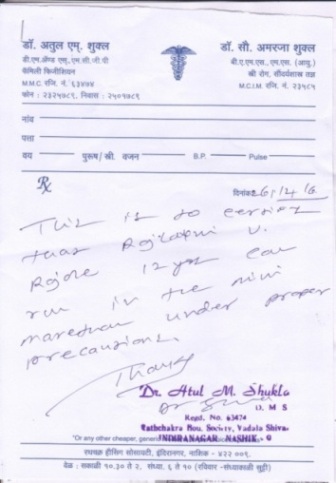 डॉ. अतुल एम्. शुक्ल
डी.एम.अॅण्ड एस्. एम.सी.जी.पी
फॅमिली फिजीशियन
M.M.C. रजि. नं. ६३४७४
फोन : २३२५७८९, निवास : २५०१७८९
डॉ. सौ. अमरजा शुक्ल
बी.ए.एम.एस., एम.एस. (आयु.)
स्त्री रोग, सौंदर्यशास्त्र तज्ञ
M.C.I.M. रजि. नं. २३५८५
नांव
पत्ता
वय पुरूष/ स्त्री. वजन B.P. Pulse
Rx
दिनांक 26/4/6
This is to certify
that V.
12 yrs can
run in the mini
marathon under proper
precautions.
Thanks
Dr. Atul M. Shukla
D. M. S
Regd. No. 63474
Rathchakra Hou. Society, Vadala Shiva-
"Or any other cheaper,
INDIRANAGAR, NASHIK - 9
रथचक्र हौसिंग सोसायटी, इंदिरानगर, नाशिक - ४२२ ००९.
वेळ : सकाळी १०.३० ते २. संध्या. ६ ते १० (रविवार -संध्याकाळी सुट्टी)